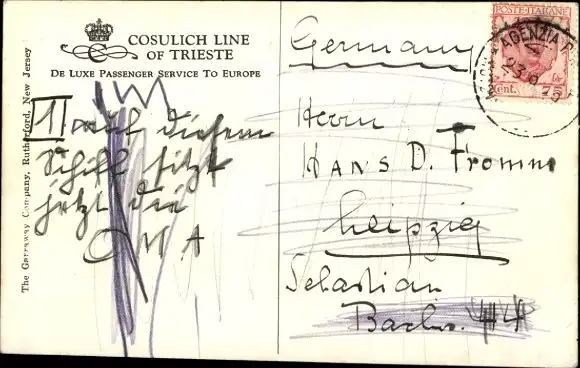 COSULICH LINE
OF TRIESTE
DE LUXE PASSENGER SERVICE TO EUROPE
The Garraway Company, Rutherford, New Jersey
II auf diesem
Schiff sitzt
jetzt die
OMA
POSTE ITALIANE
Cent. 75
AGENZIA
Germany
Herrn
HANS D. Fromm
Leipzig
Sebastian
Bachstr. 44